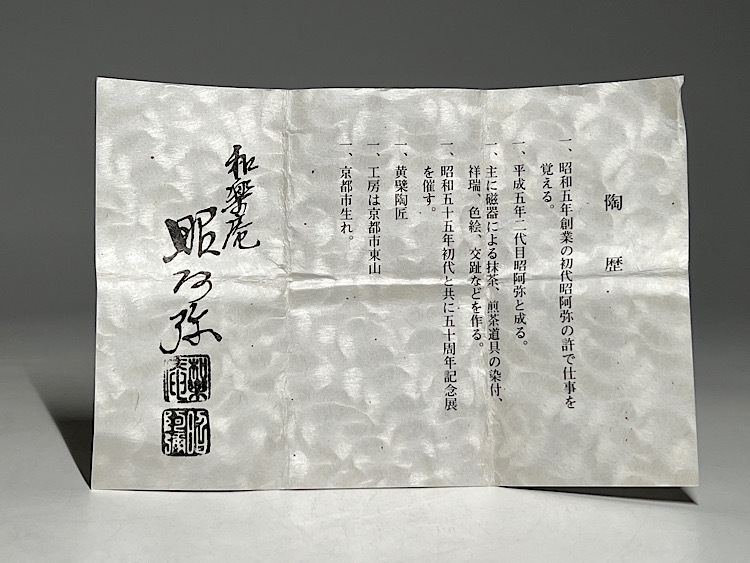 陶歴
一、昭和五年創業の初代昭阿弥の許で仕事を
覚える。
一、平成五年二代目昭阿弥と成る。
一、主に磁器による抹茶、煎茶道具の染付、
祥瑞、色絵、交趾などを作る。
一、昭和五十五年初代と共に五十周年記念展
を催す。
一、黄檗陶匠
一、工房は京都市東山
一、京都市生れ。
和楽庵
昭阿弥